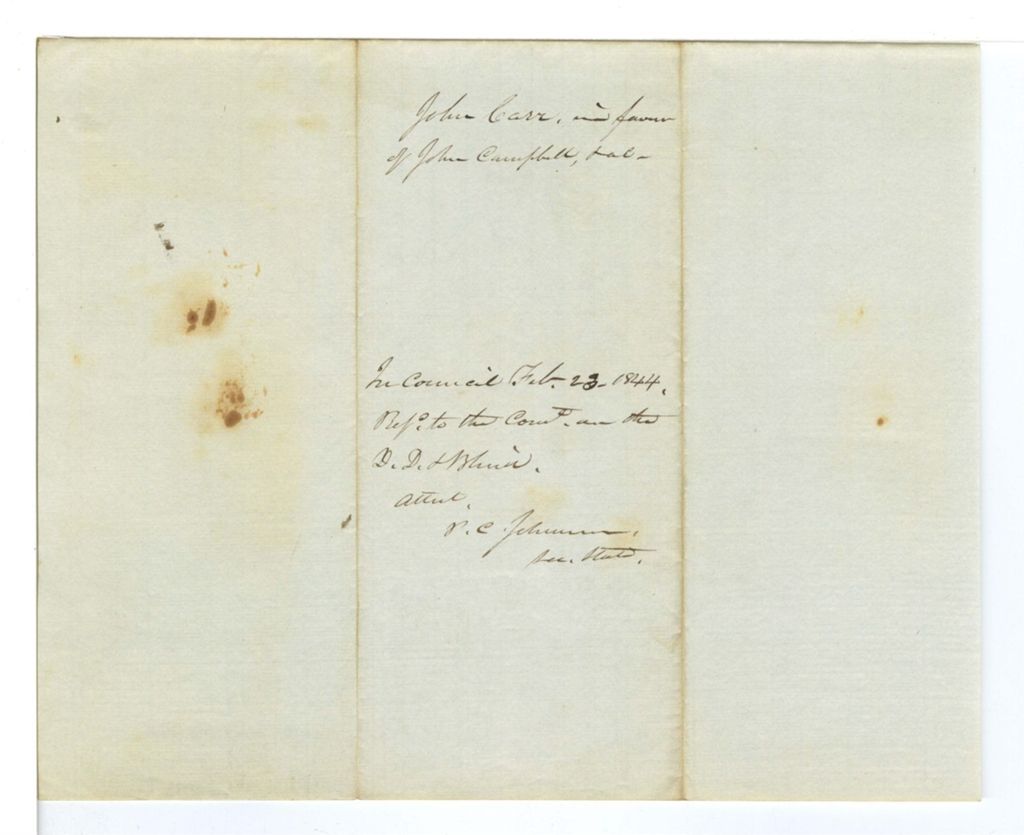 John Carr, in favour
of John Campbell, & al-
In Council Feb. 23-1844.
Refd. to the Comt. on the
D. D. & Blind.
Attest,
P. C. Johnson,
Sec. State.